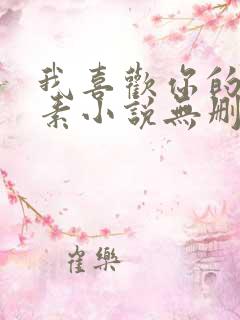 我喜歡你的
素小說無刪
雀樂